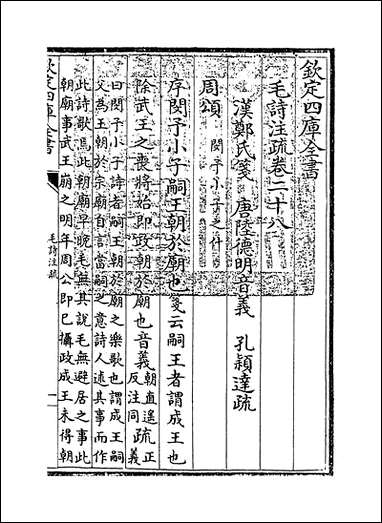 欽定四庫全書
毛詩注疏卷二十八
漢鄭氏箋 唐陸德明音義 孔穎達疏
周頌 閔予小子之什
序閔予小子嗣王朝於廟也箋云嗣王者謂成王也
除武王之喪將始即政朝於廟也音義朝直遙反注同疏正義
曰閔予小子詩者嗣王朝於廟之樂歌也謂成王嗣
父為王朝於宗廟自言當嗣之意詩人述其事而作
此詩歌焉此朝廟早晚毛無其說毛無避居之事此
朝廟事武王崩之明年周公即已攝政成王未得朝
欽定四庫全書
毛詩注疏
一